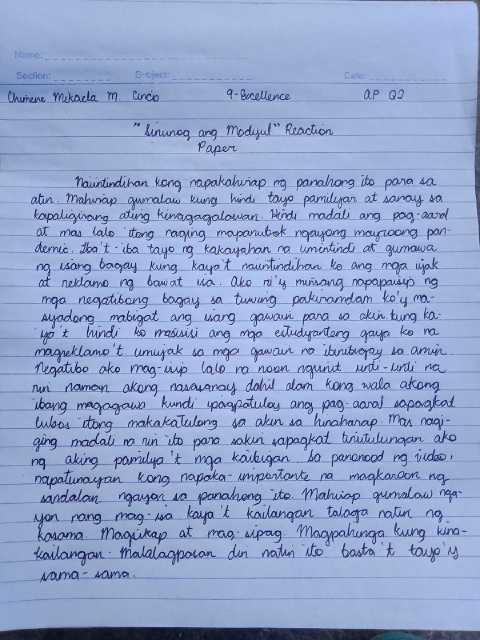 Name:
Section: Subject: Date:
Chimene Mikaela M. Cincio 9-Excellence AP Q2
"Sinunog ang Modyul" Reaction
Paper
Naiintindihan kong napakahirap ng panahong ito para sa
atin. Mahirap gumalaw kung hindi tayo pamilyar at sanay sa
kapaligirang ating kinagagalawan. Hindi madali ang pag-aaral
at mas lalo itong naging mapanubok ngayong mayroong pan-
demic. Iba't-iba tayo ng kakayahan na umintindi at gumawa
ng isang bagay kung kaya't naiintindihan ko ang mga iyak
at reklamo ng bawat isa. Ako ri'y minsang napapaisip ng
mga negatibong bagay sa tuwing pakiramdam ko'y ma-
syadong mabigat ang isang gawain para sa akin. Kung ka-
ya't hindi ko masisisi ang mga estudyanteng gaya ko na
magreklamo't umiyak sa mga gawain na ibinibigay sa amin.
Negatibo ako mag-isip lalo na noon ngunit unti-unti na
rin naman akong nasasanay dahil alam kong wala akong
ibang magagawa kundi ipagpatuloy ang pag-aaral sapagkat
lubos itong makakatulong sa akin sa hinaharap. Mas nagi-
ging madali na rin ito para sakin sapagkat tinutulungan ako
ng aking pamilya't mga kaibigan. Sa panonood ng video,
napatunayan kong napaka-importante na magkaroon ng
sandalan ngayon sa panahong ito. Mahirap gumalaw nga-
yon nang mag-isa kaya't kailangan talaga natin ng
kasama. Magsikap at mag-sipag. Magpahinga kung kina-
kailangan. Malalagpasan din natin ito basta't tayo'y
sama-sama.